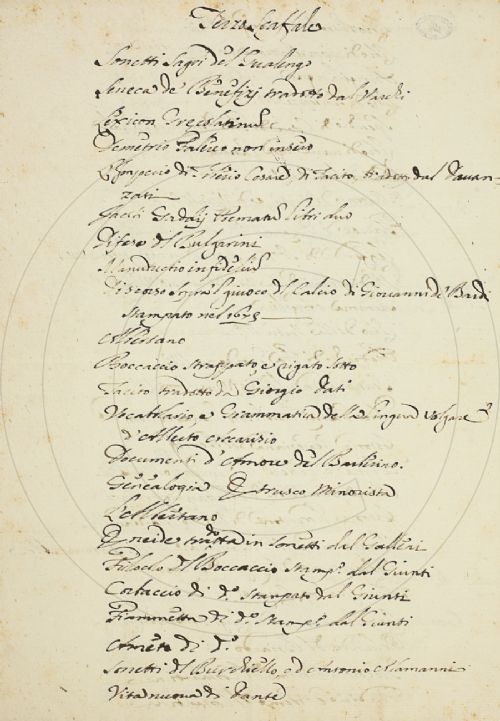 Terzo Scaffale
Sonetti Sagri del
Seneca de Benefizj tradotto dal Varchi
Lexicon Grecolatinum
Demetrio Falereo non intero
L'Imperio di Tiberio Cesare di Tacito, tradotto dal Davan-
zati
Libri duo
Difese del Bulgarini
Manuductio infidelium
Discorso sopra il giuoco del Calcio di Giovanni de Bardi
stampato nel
Boccaccio strappato, e rigato sotto
Tacito tradotto da Giorgio Dati
Vocabulario, e Grammatica della lingua volgare
d'Alberto
Documenti d'Amore del Barberino.
Genealogia Etrusco Minorista
Eneide in sonetti dal
Filoclo del Boccaccio stamp.º dal Giunti
Corbaccio di d.º stampato dal Giunti
Fiammetta di d.º stamp.º dal Giunti
Ameto di d.º
Sonetti del Burchiello, ed Antonio Alamanni
Vita nuova di Dante